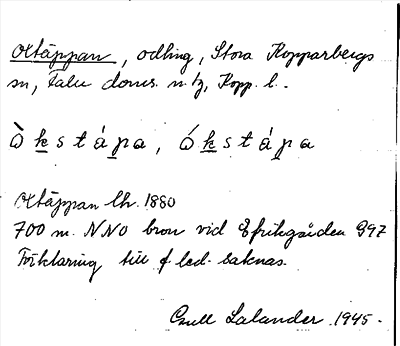 Oxtäppan, odling, Stora Kopparbergs
sn, Falu doms. n. tg, Kopp. l.
ò k s t á p a, ó k s t á p a
Oxtäppan lh. 1880
700 m. NNO bron vid Efrikgården 997
Förklaring till f. led. saknas.
Gull Lalander 1945.